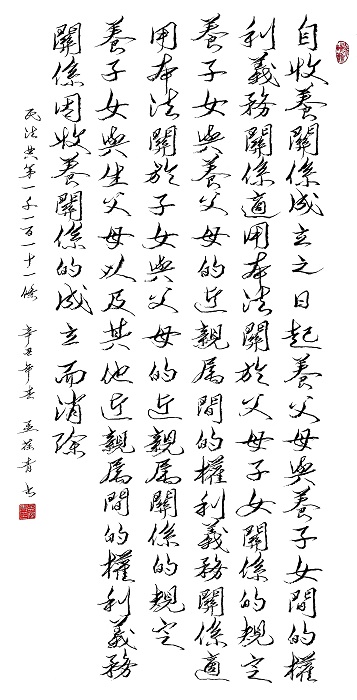 自收養關係成立之日起養父母與養子女間的權
利義務關係適用本法關於父母子女關係的規定
養子女與養父母的近親屬間的權利義務關係適
用本法關於子女與父母的近親屬關係的規定
養子女與生父母以及其他近親屬間的權利義務
關係因收養關係的成立而消除
民法典第一千一百一十一條 辛丑年 書